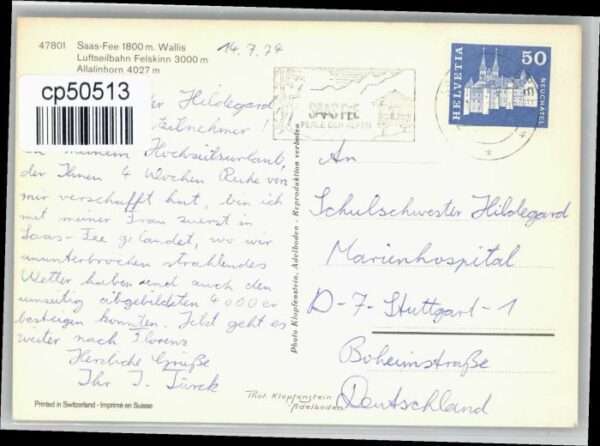 47801 Saas-Fee 1800 m. Wallis
Luftseilbahn Felskinn 3000 m
Allalinhorn 4027 m
14.7.74
cp50513
ter Hildegard
Teilnehmer!
meinem Hochzeitsurlaub,
der Ihnen 4 Wochen Ruhe von
mir verschafft hat, bin ich
mit meiner Frau zuerst in
Saas-Fee gelandet, wo wir
ununterbrochen strahlendes
Wetter haben und auch den
umseitig abgebildeten 4000er
besteigen konnten. Jetzt geht es
weiter nach Florenz
Herzliche Grüße
Ihr J. Türck
Printed in Switzerland - Imprimé en Suisse
Photo Klopfenstein, Adelboden - Reproduktion verboten
Phot. Klopfenstein
Adelboden
SAAS-FEE
PERLE DER ALPEN
HELVETIA
50
NEUCHÂTEL
An
Schulschwester Hildegard
Marienhospital
D-7-Stuttgart-1
Böheimstraße
Deutschland